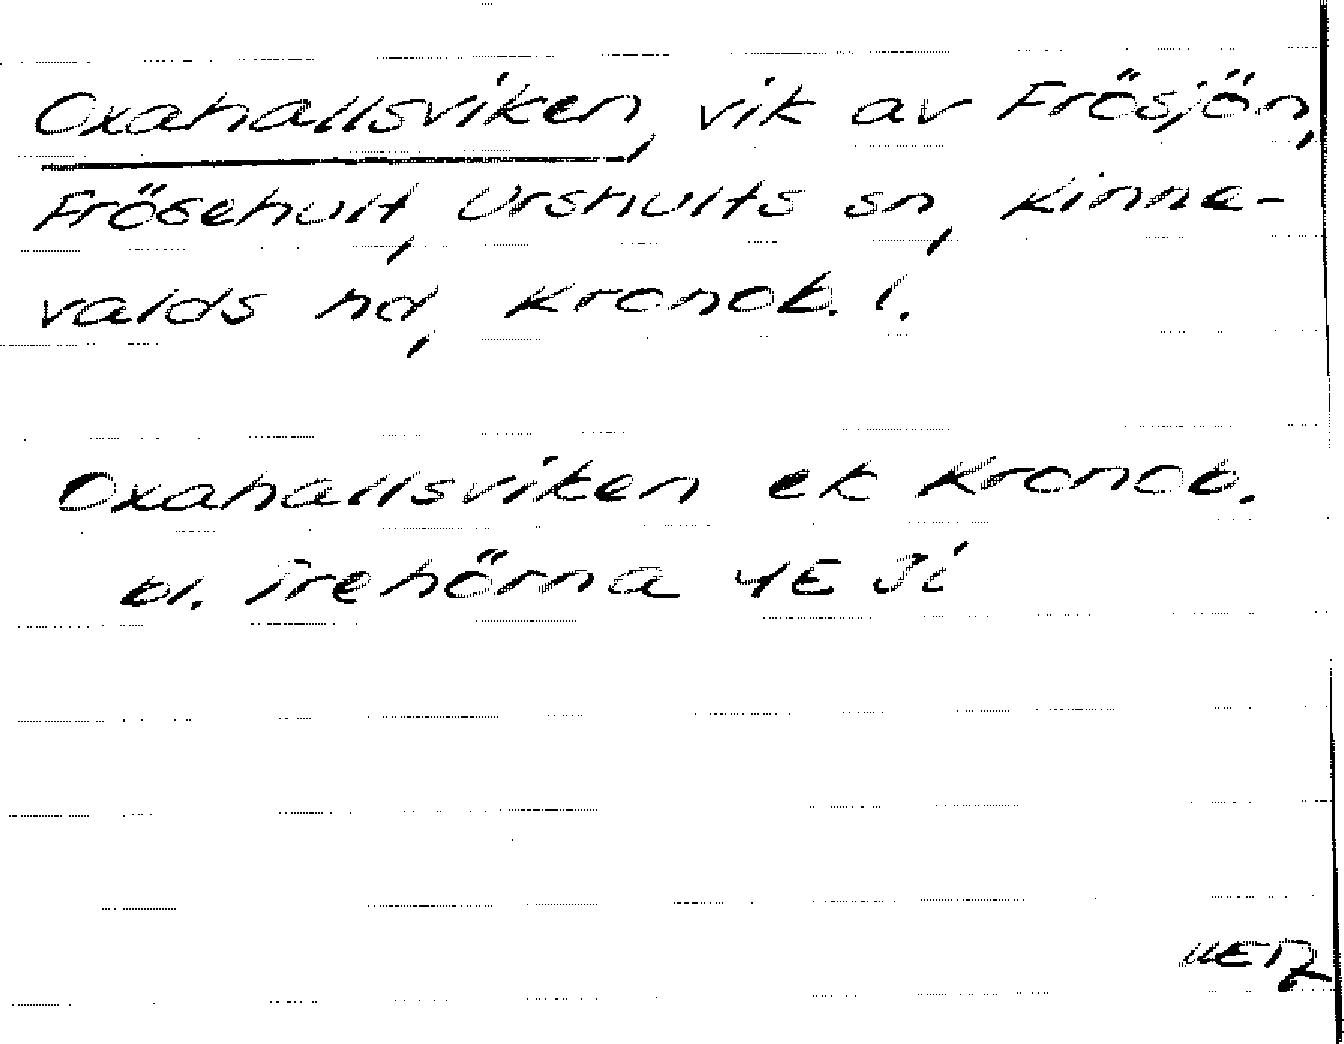 Oxahallsviken, vik av Frösjön,
Frösehult, Urshults sn, Kinne-
valds hd, Kronob. l.
Oxahallsviken ek Kronob.
bl. Trehörna 4E 3i